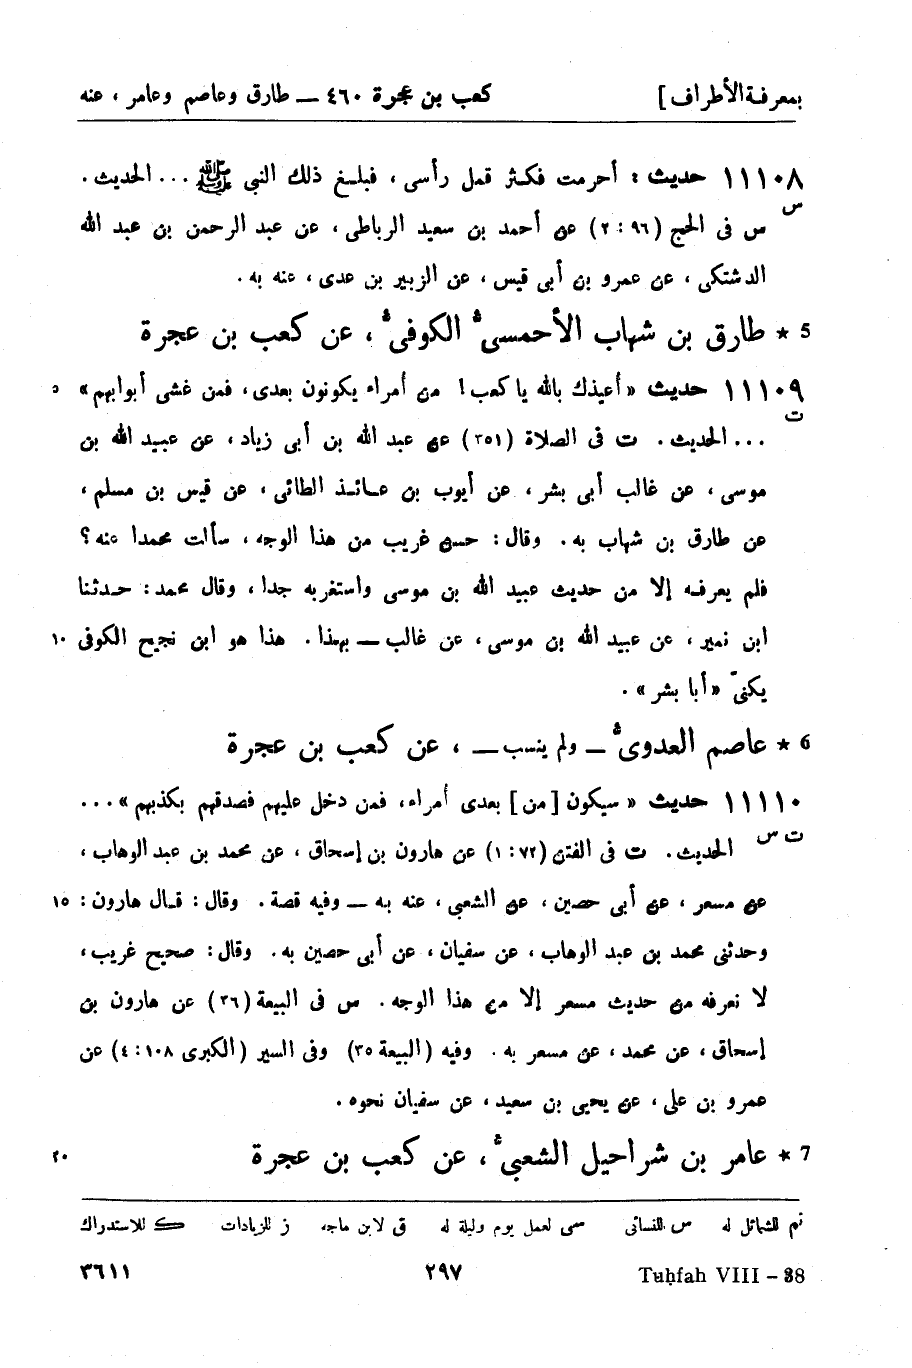 بمعرفة الأطراف] كعب بن عجرة ٤٦٠ — طارق وعاصم وعامر ، عنه
١١١٠٨ حديث : أحرمت فكثر قمل رأسى ، فبلغ ذلك النبي ﷺ ... الحديث .
س
س فى الحج (٩٦ : ٢) عن أحمد بن سعيد الرباطى ، عن عبد الرحمن بن عبد الله
الدشتكى ، عن عمرو بن أبى قيس ، عن الزبير بن عدى ، عنه به .
5 * طارق بن شهاب الأحمسى ، الكوفى ، عن كعب بن عجرة
١١١٠٩ حديث «أعيذك بالله يا كعب ! من أمراء يكونون بعدى ، فمن غشى أبوابهم» ٥
ت
... الحديث . ت فى الصلاة (٣٥١) عن عبد الله بن أبى زياد ، عن عبيد الله بن
موسى ، عن غالب أبى بشر ، عن أيوب بن عائذ الطائى ، عن قيس بن مسلم ،
عن طارق بن شهاب به . وقال : حسن غريب من هذا الوجه ، سألت محمدا عنه ؟
فلم يعرفه إلا من حديث عبيد الله بن موسى واستغربه جدا ، وقال محمد : حدثنا
ابن نمير ، عن عبيد الله بن موسى ، عن غالب — بهذا . هذا هو ابن نجيح الكوفى ١٠
يكنىّ «أبا بشر» .
6 * عاصم العدوى — ولم ينسب — ، عن كعب بن عجرة
١١١١٠ حديث «سيكون [من] بعدى أمراء ، فمن دخل عليهم فصدقهم بكذبهم» ...
ت س
الحديث . ت فى الفتن (٧٢ : ١) عن هارون بن إسحاق ، عن محمد بن عبد الوهاب ،
عن مسعر ، عن أبى حصين ، عن الشعبى ، عنه به — وفيه قصة . وقال : قال هارون : ١٥
وحدثنى محمد بن عبد الوهاب ، عن سفيان ، عن أبى حصين به . وقال : صحيح غريب ،
لا نعرفه من حديث مسعر إلا من هذا الوجه . س فى البيعة (٣٦) عن هارون بن
إسحاق ، عن محمد ، عن مسعر به . وفيه (البيعة ٣٥) وفى السير (الكبرى ١٠٨ : ٤) عن
عمرو بن على ، عن يحيى بن سعيد ، عن سفيان نحوه .
7 * عامر بن شراحيل الشعبي ، عن كعب بن عجرة ٢٠
تم للشمائل له س للنسائى سى لعمل يوم وليلة له ق لابن ماجه ز للزيادات ك للاستدراك
٣٦١١ ٢٩٧ Tuḥfah VIII – 38